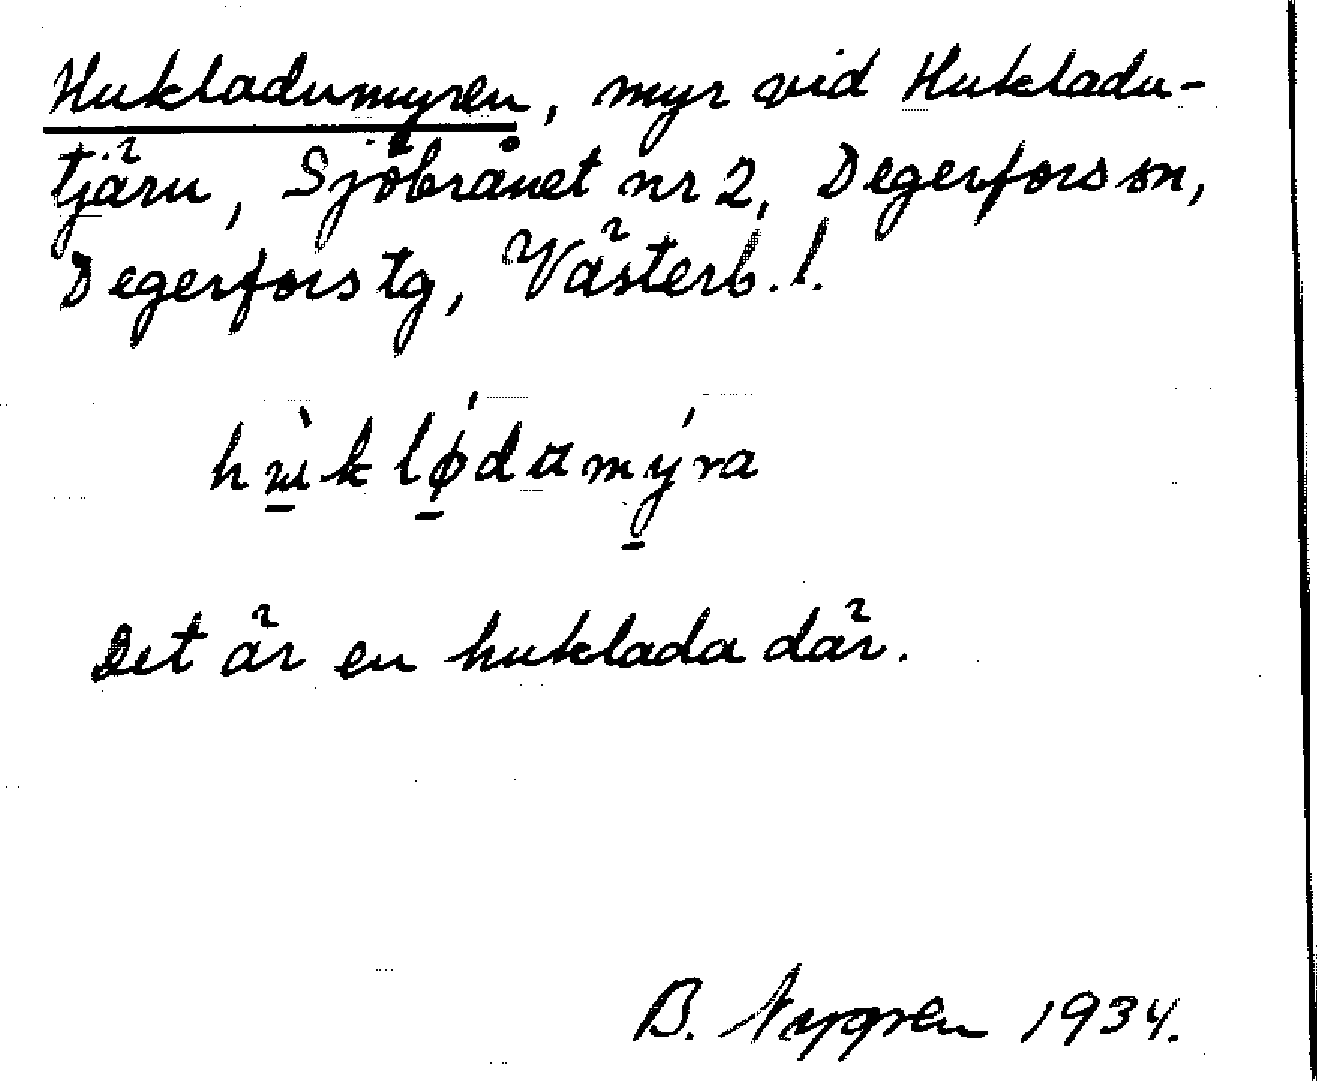 Hukladumyren, myr vid Hukladu-
tjärn, Sjöbrånet nr 2, Degerfors sn,
Degerfors tg, Västerb. l.
Det är en huklada där.
B. Nygren 1934.